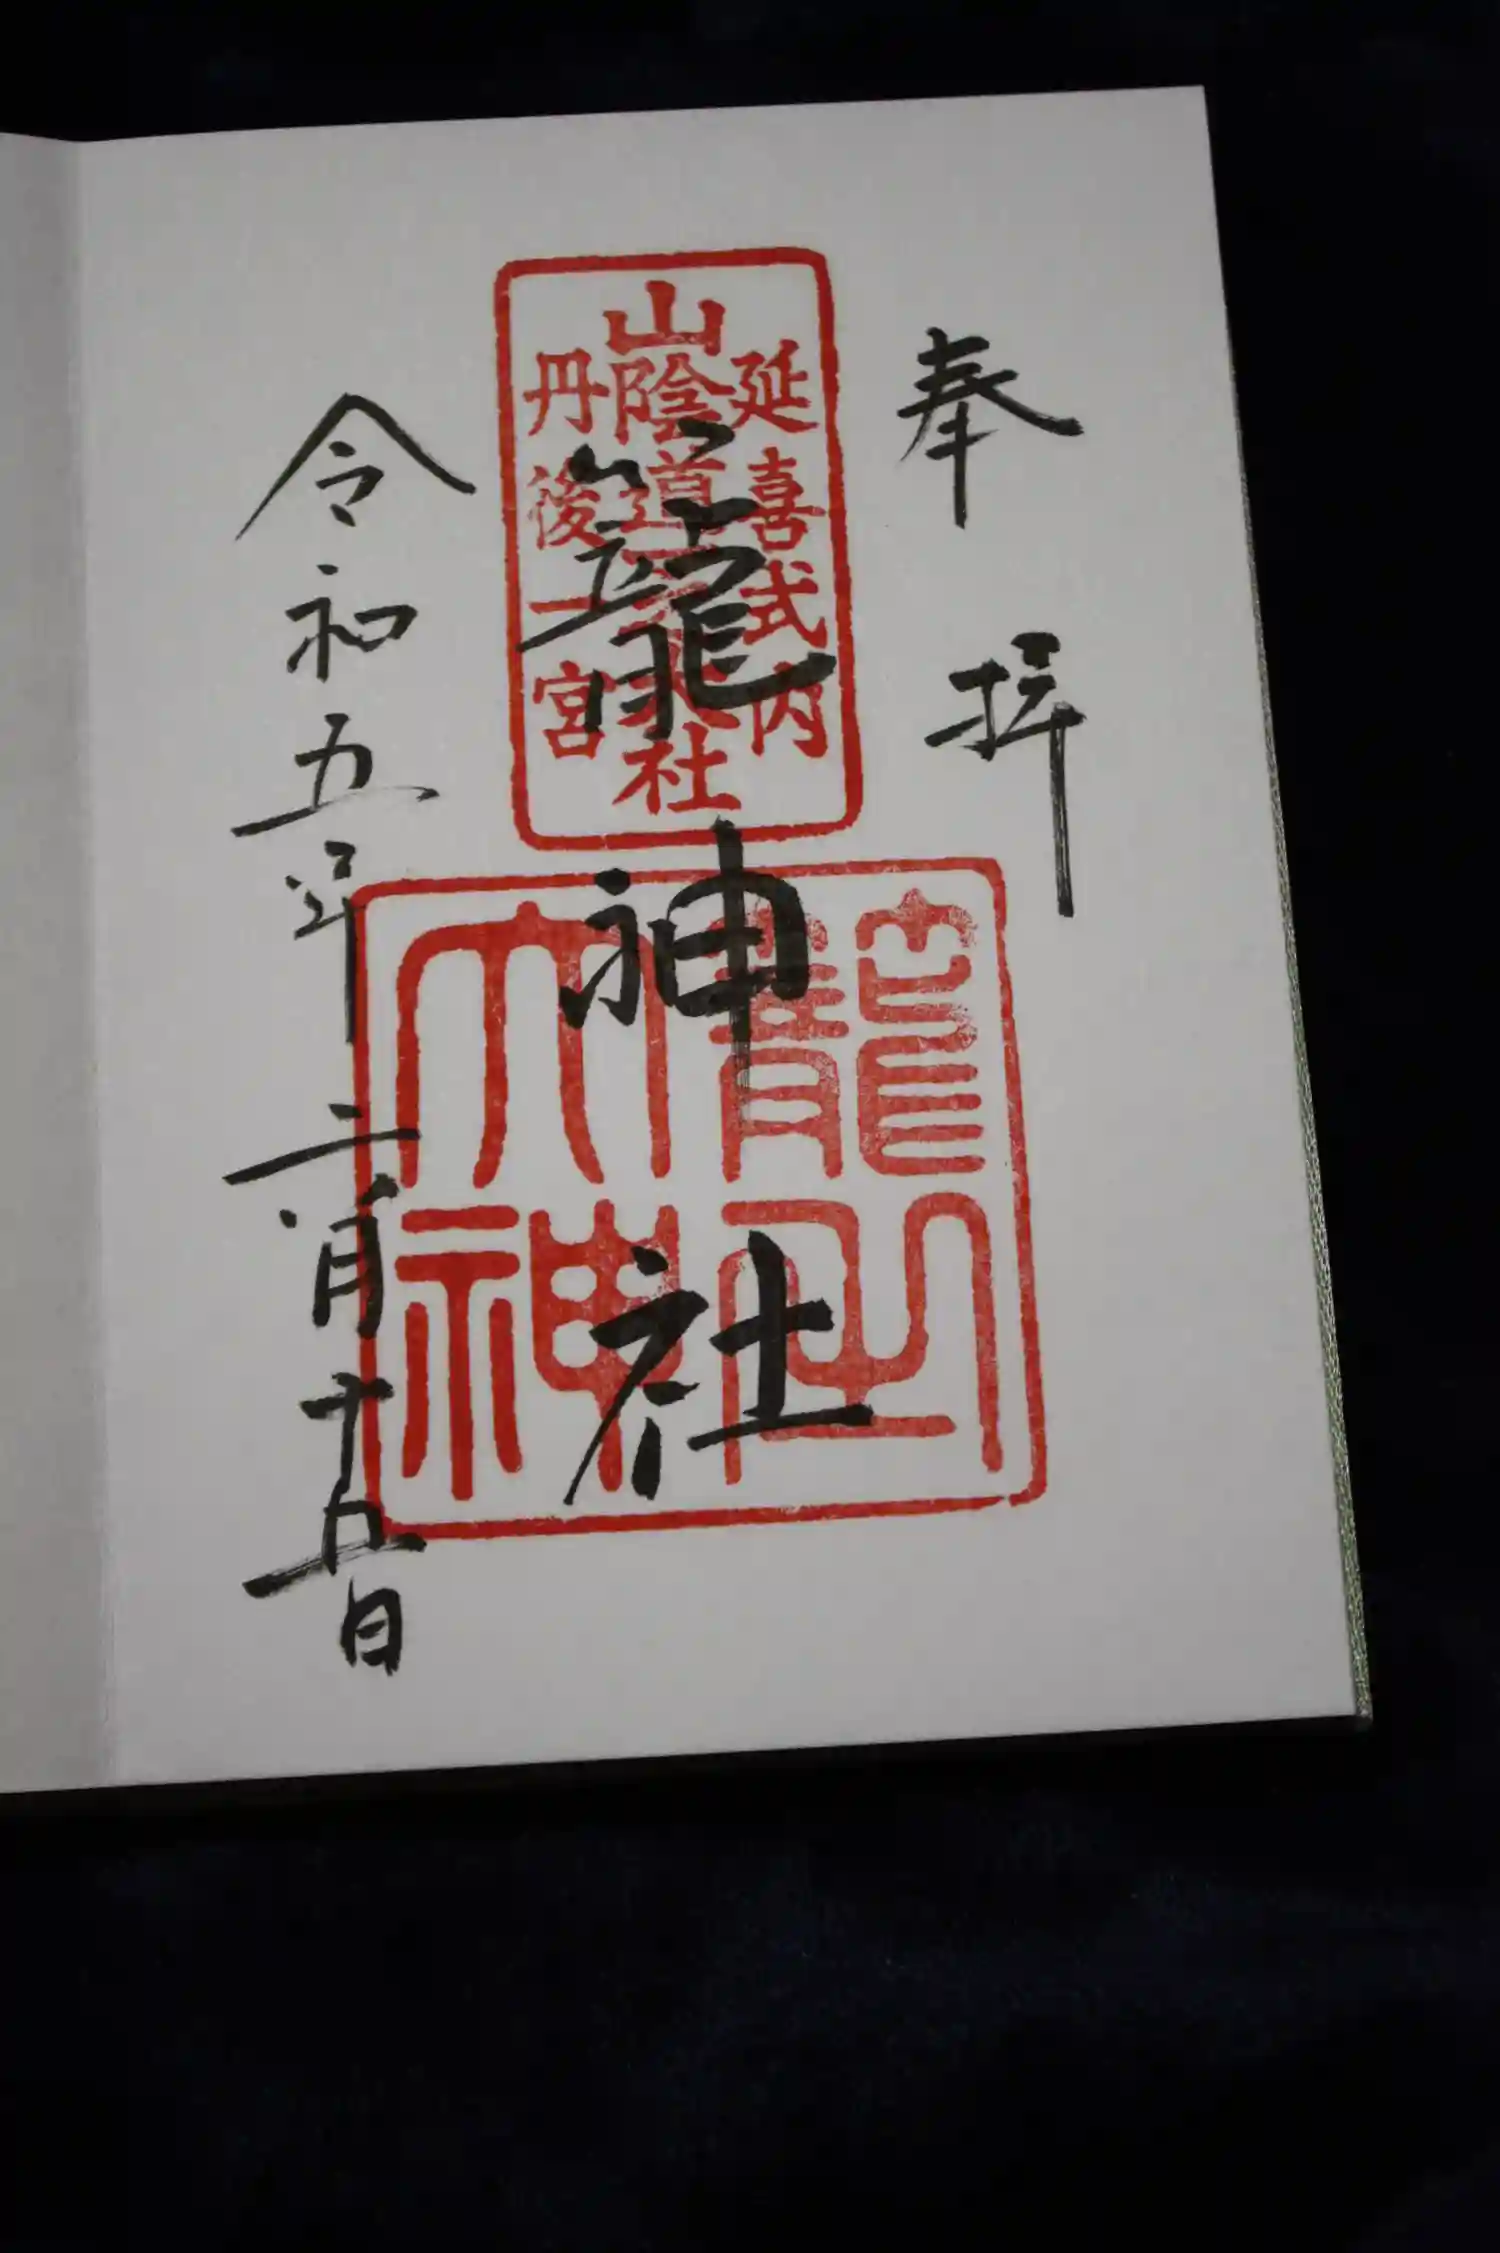 奉拝
延喜式内
山陰道
大社
丹後一宮
籠神社
大神
令和五年六月十五日